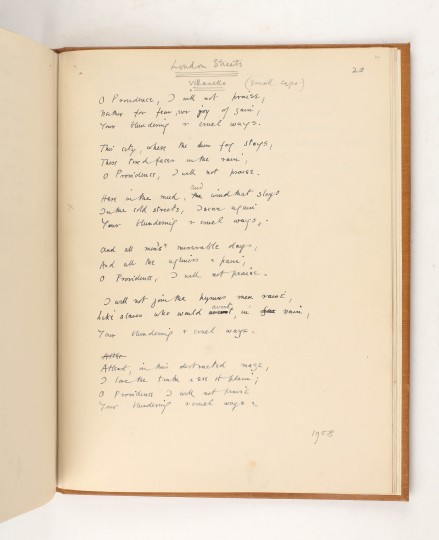 London Streets
20
Villanelle (small caps)
O Providence, I will not praise,
Neither for fear, nor joy of gain,
Your blundering & cruel ways.
This city, where the dun fog stays,
These tired faces in the rain,
O Providence, I will not praise.
Here in the mud, and wind that slays
In the cold streets, I scan again
Your blundering & cruel ways,
And all men's miserable days,
And all their ugliness & pain,
O Providence, I will not praise.
I will not join the hymns men raise,
Like slaves who would avert, in vain,
Your blundering & cruel ways.
At least, in this distracted maze,
I love the truth & see it plain;
O Providence I will not praise
Your blundering & cruel ways.
1908